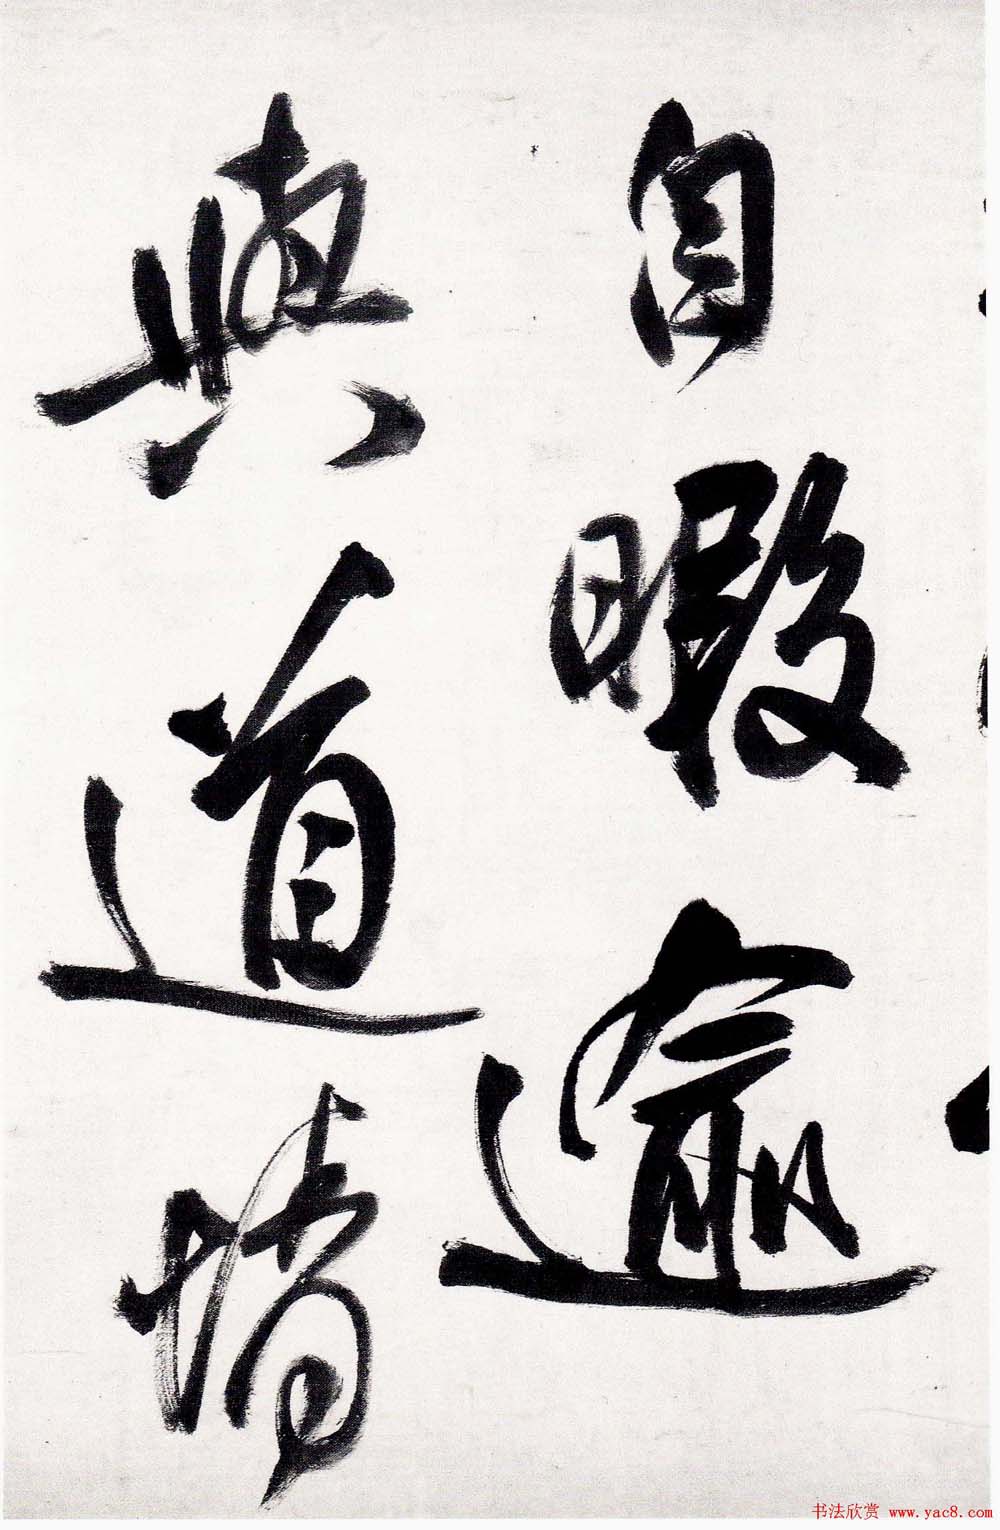 自暇逾
與道情
书法欣赏 www.yac8.com